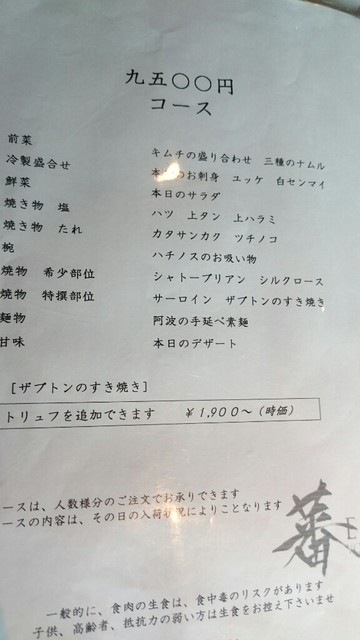 九五〇〇円
コース
前菜 キムチの盛り合わせ 三種のナムル
冷製盛合せ 本 のお刺身 ユッケ 白センマイ
鮮菜 本日のサラダ
焼き物 塩 ハツ 上タン 上ハラミ
焼き物 たれ カタサンカク ツチノコ
椀 ハチノスのお吸い物
焼物 希少部位 シャトーブリアン シルクロース
焼物 特撰部位 サーロイン ザブトンのすき焼き
麺物 阿波の手延べ素麺
甘味 本日のデザート
[ザブトンのすき焼き]
トリュフを追加できます ￥1,900～(時価)
ースは、人数様分のご注文でお承りできます
ースの内容は、その日の入荷状況によりことなります
蕃
一般的に、食肉の生食は、食中毒のリスクがあります
子供、高齢者、抵抗力の弱い方は生食をお控え下さいませ